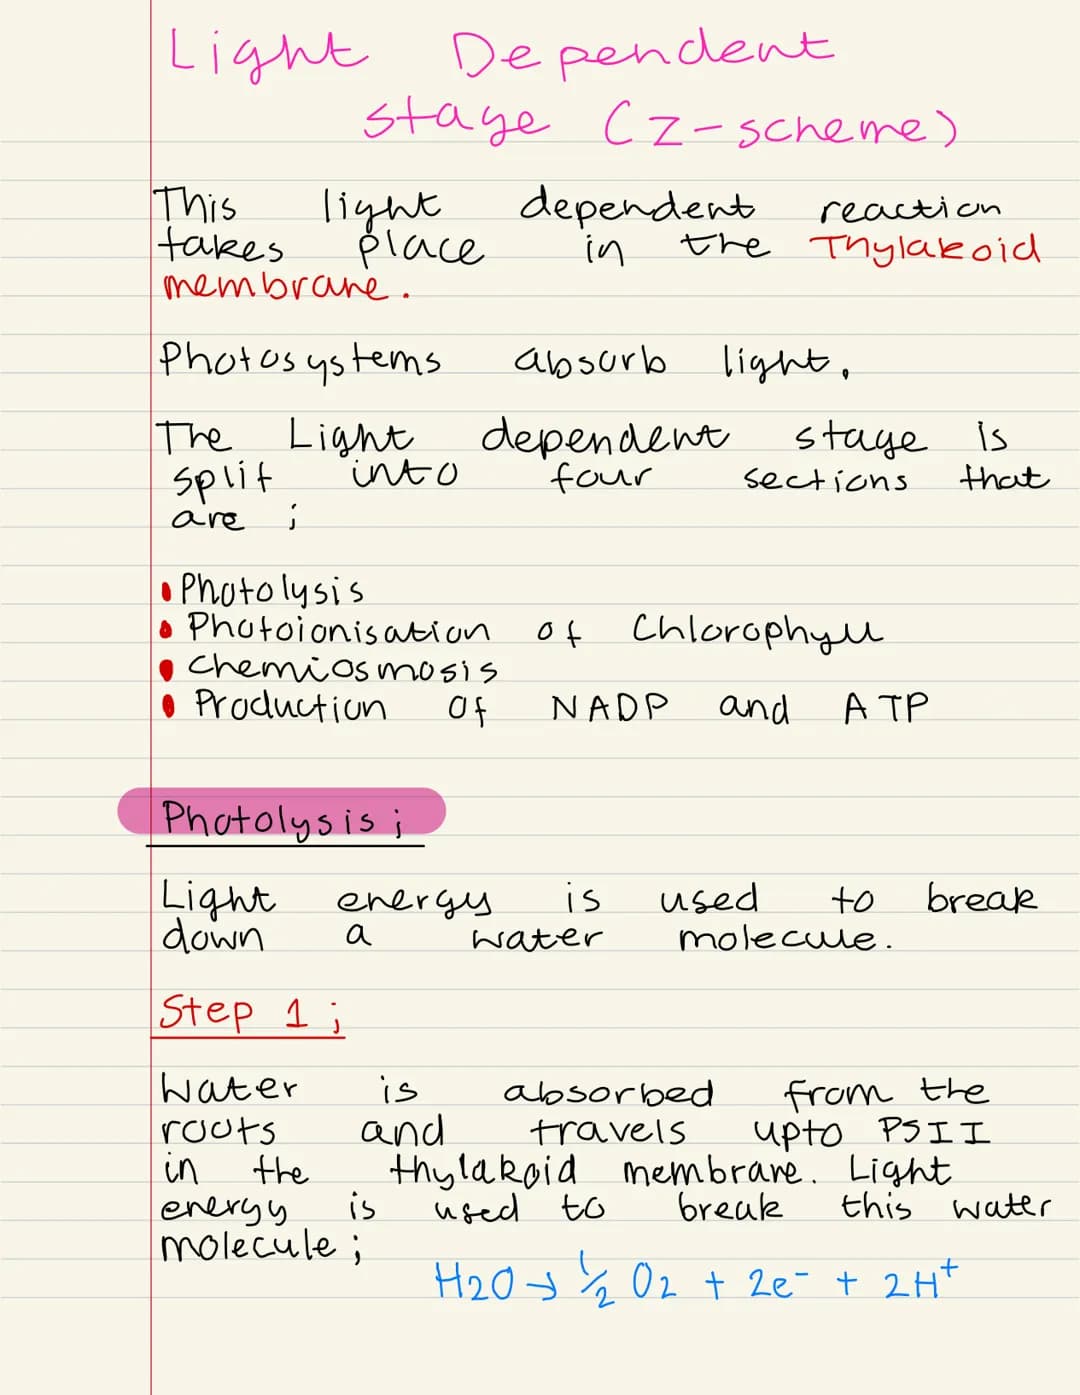 Light Dependent
stage (Z-scheme)
This light dependent reaction
takes place in the Thylakoid
membrane.
Photosystems absorb light.
The Light dependent stage is
split into four sections that
are ;
• Photolysis
• Photoionisation of Chlorophyll
• Chemiosmosis
• Production of NADP and ATP
Photolysis ;
Light energy is used to break
down a water molecule.
Step 1 ;
Water is absorbed from the
roots and travels upto PSII
in the thylakoid membrane. Light
energy is used to break this water
molecule ;
H2O → 1/2 O2 + 2e⁻ + 2H⁺